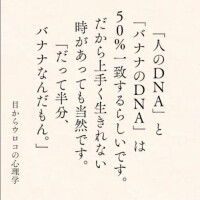 「人のDNA」と
「バナナのDNA」は
50%一致するらしいです。
だから上手く生きれない
時があっても当然です。
「だって半分、
バナナなんだもん。」
目からウロコの心理学